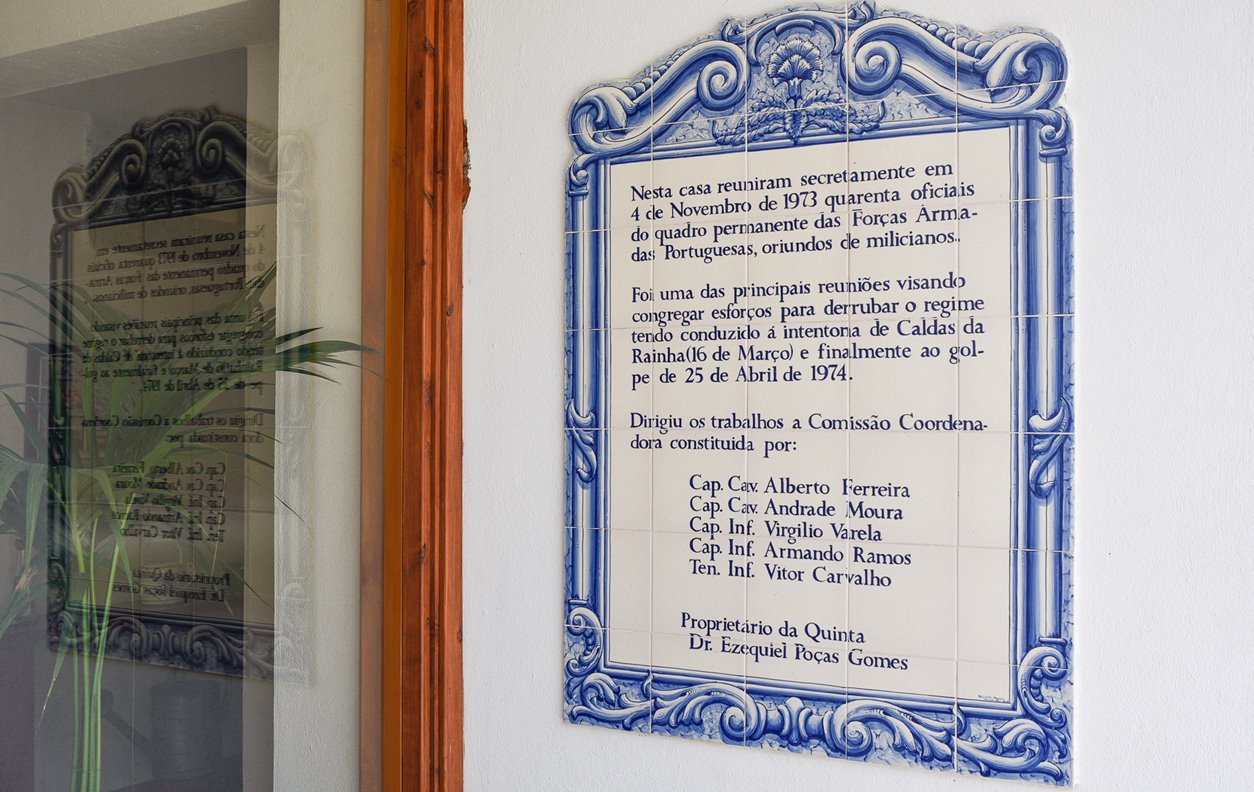 Nesta casa reuniram secretamente em
4 de Novembro de 1973 quarenta oficiais
do quadro permanente das Forças Arma-
das Portuguesas, oriundos de milicianos.
Foi uma das principais reuniões visando
congregar esforços para derrubar o regime
tendo conduzido á intentona de Caldas da
Rainha(16 de Março) e finalmente ao gol-
pe de 25 de Abril de 1974.
Dirigiu os trabalhos a Comissão Coordena-
dora constituida por:
Cap. Cav. Alberto Ferreira
Cap. Cav. Andrade Moura
Cap. Inf. Virgilio Varela
Cap. Inf. Armando Ramos
Ten. Inf. Vitor Carvalho
Proprietário da Quinta
Dr. Ezequiel Poças Gomes